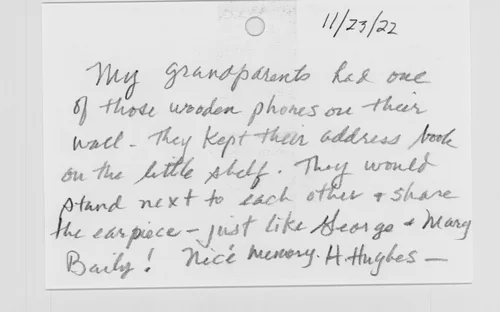 11/23/22
My grandparents had one
of those wooden phones on their
wall - they kept their address book
on the little shelf. They would
stand next to each other + share
the earpiece - just like George + Mary
Baily! Nice memory. H. Hughes -